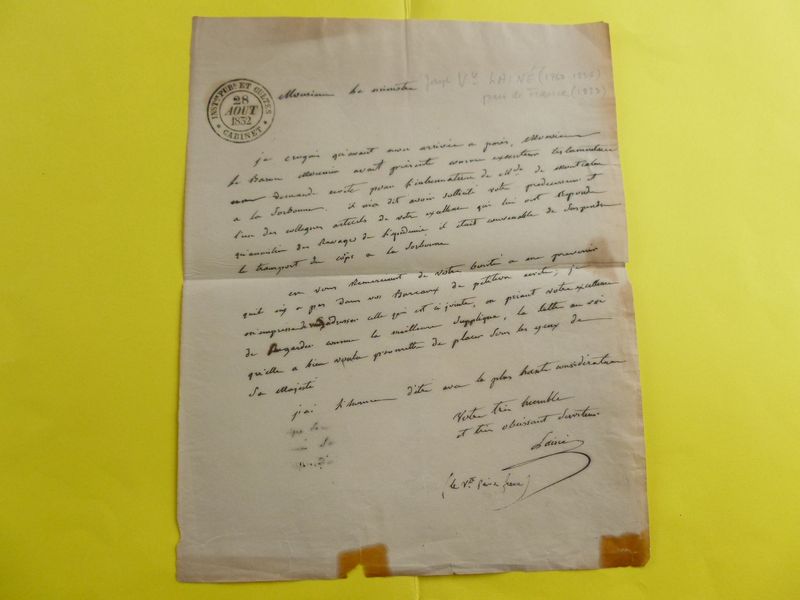 INST.ON PUB.E ET CULTES
28
AOUT
1832
CABINET
Monsieur le ministre
Joseph V.te LAINÉ (1767-1835)
pair de France (1823)
je croyais qu'avant mon arrivée a paris, Monsieur
le Baron Mounier avait présenté comme executeur testamentaire
une demande écrite pour l'inhumation de M.de de Montcalm
a la Sorbonne. il m'a dit avoir sollicité votre prédécesseur et
l'un des collegues actuels de votre excellence qui lui ont répondu
qu'au milieu des Ravages de l'épidémie, il était convenable de suspendre
le transport du corps a la Sorbonne
en vous Remerciant de votre bonté a me prevenir
qu'il n'y a pas dans vos Bureaux de petition écrite, je
m'empresse de vous adresser celle qui est ci jointe, en priant votre excellence
de Regarder comme la meilleure supplique, la lettre au roi
qu'elle a bien voulu promettre de placer sous les yeux de
Sa Majesté
j'ai l'honneur d'être avec la plus haute considération
Votre très humble
et très obeissant Serviteur
Lainé
(le V.te pair de france)